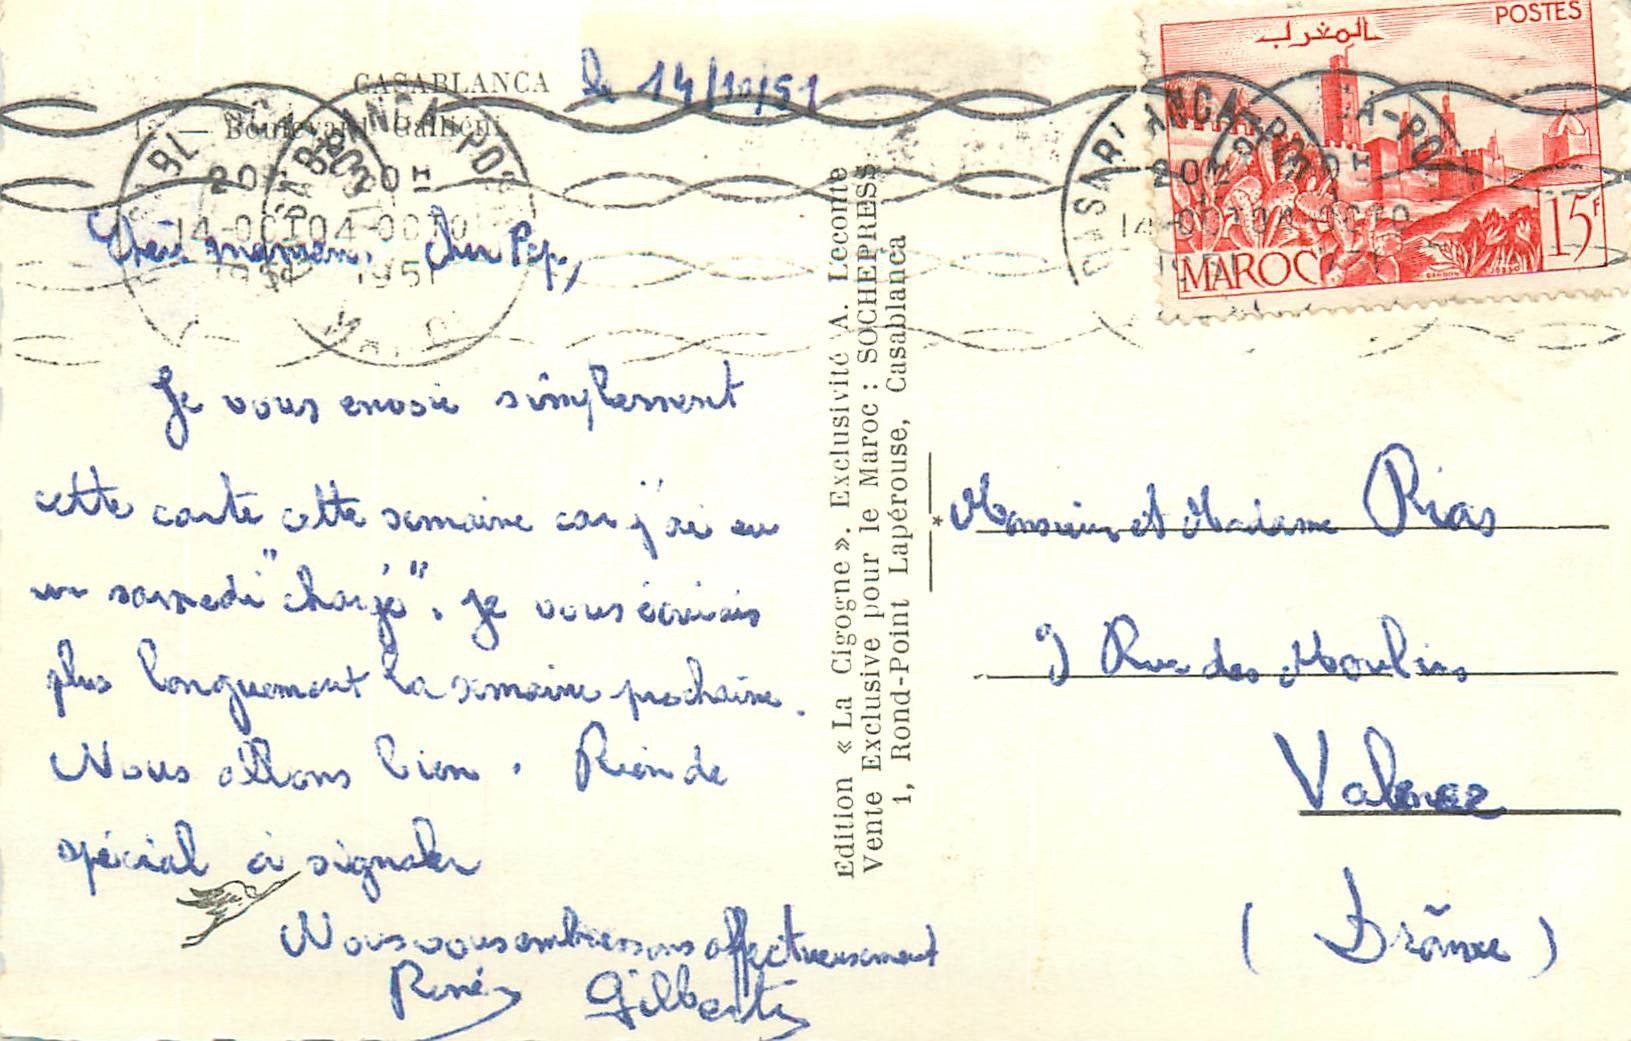 CASABLANCA
12. — Boulevard Galliéni
le 14/10/51
Chère maman, Cher Papa,
Je vous envoie simplement
cette carte cette semaine car j'ai eu
un samedi "chargé". Je vous écrirais
plus longuement la semaine prochaine.
Nous allons bien. Rien de
spécial à signaler
Nous vous embrassons affectueusement
René Gilberte
Edition « La Cigogne ». Exclusivité A. Leconte
Vente Exclusive pour le Maroc : SOCHEPRESS
1, Rond-Point Lapérouse, Casablanca
POSTES
المغرب
15F
MAROC
CASABLANCA-POSTES
20H
14-OCTO
1951
Monsieur et Madame Rias
9 Rue des Moulins
Valence
(Drôme)